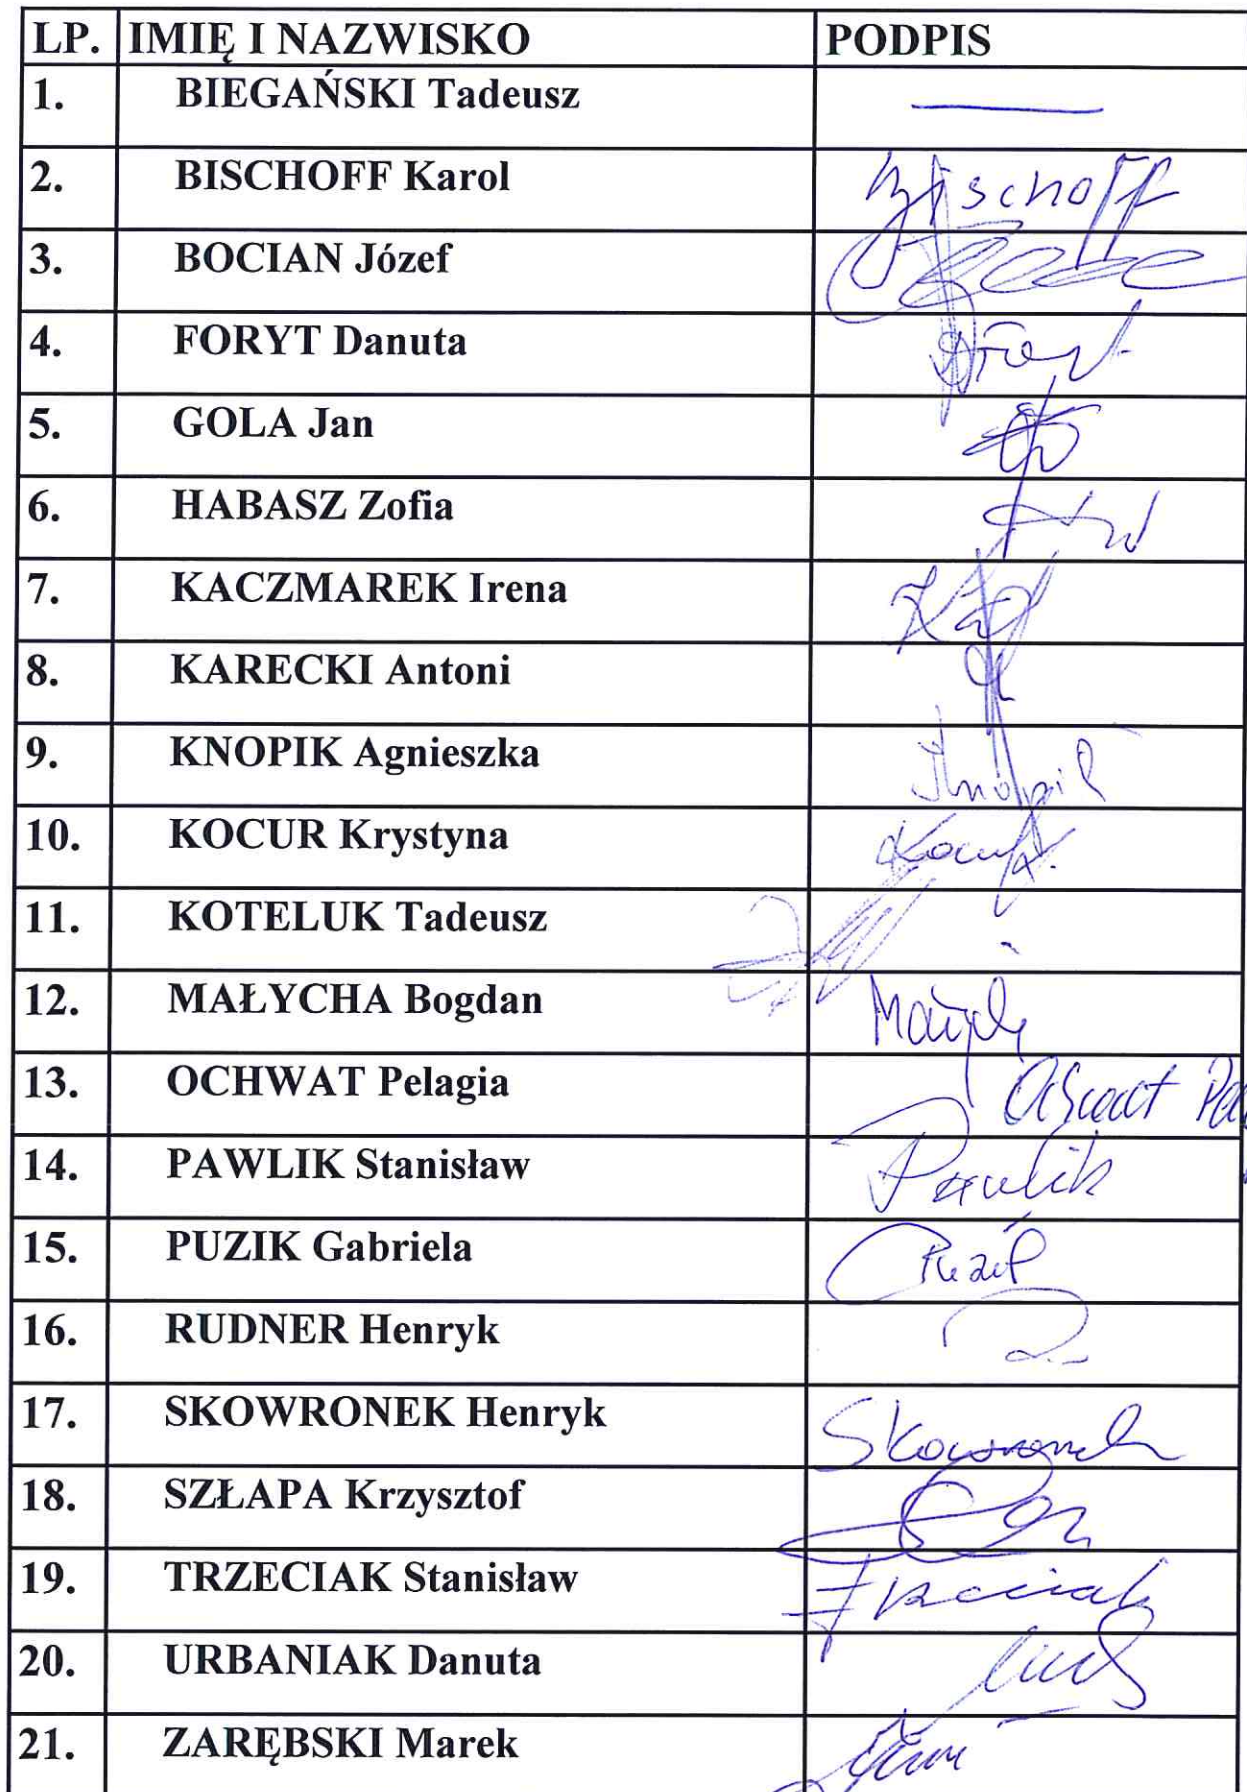 LP. IMIĘ I NAZWISKO PODPIS
1. BIEGAŃSKI Tadeusz
2. BISCHOFF Karol Bischoff
3. BOCIAN Józef
4. FORYT Danuta
5. GOLA Jan
6. HABASZ Zofia
7. KACZMAREK Irena
8. KARECKI Antoni
9. KNOPIK Agnieszka Knopik
10. KOCUR Krystyna Kocur
11. KOTELUK Tadeusz
12. MAŁYCHA Bogdan
13. OCHWAT Pelagia
14. PAWLIK Stanisław Pawlik
15. PUZIK Gabriela Puzik
16. RUDNER Henryk
17. SKOWRONEK Henryk Skowronek
18. SZŁAPA Krzysztof
19. TRZECIAK Stanisław Trzeciak
20. URBANIAK Danuta
21. ZARĘBSKI Marek